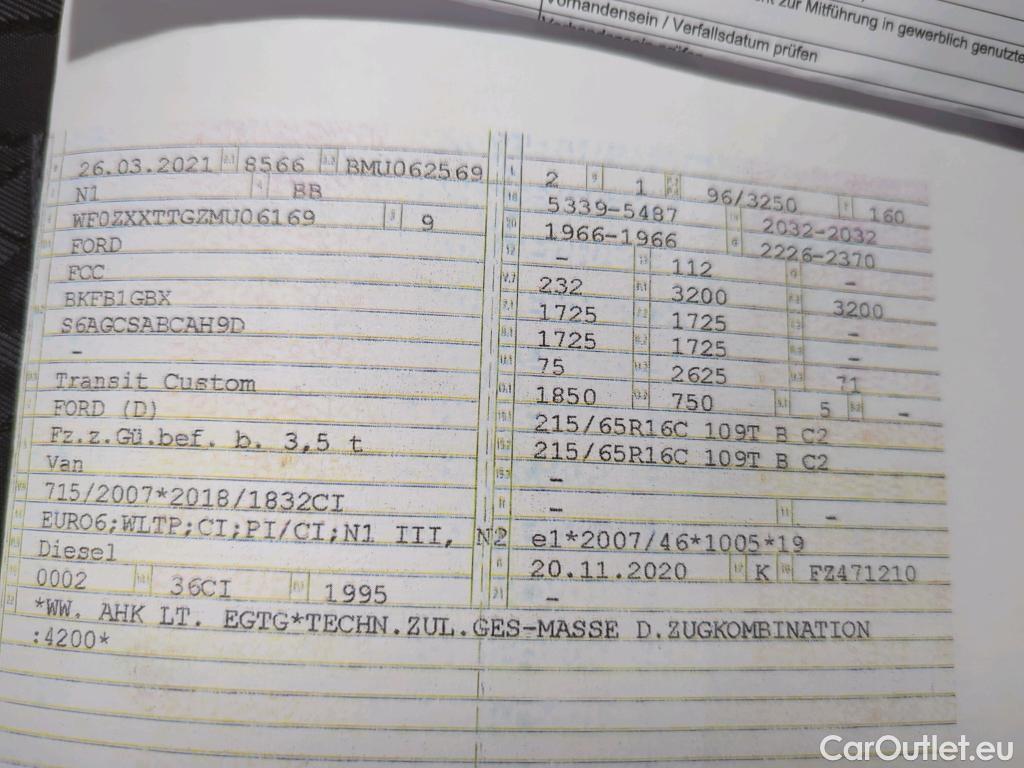 zur Mitführung in gewerblich genutzte
Vorhandensein / Verfallsdatum prüfen
26.03.2021 2.1 8566 BMU062569
N1 BB
WF0ZXXTTGZMU06169 3 9
FORD
FCC
BKFB1GBX
S6AGCSABCAH9D
–
Transit Custom
FORD (D)
Fz.z.Gü.bef. b. 3,5 t
Van
715/2007*2018/1832CI
EURO6;WLTP;CI;PI/CI;N1 III, N2
Diesel
0002 36CI 1995
2 9 1 96/3250 160
5339-5487 2032-2032
1966-1966 2226-2370
– 112 –
232 3200 3200
1725 1725 –
1725 1725 –
75 2625 71
1850 750 5 –
215/65R16C 109T B C2
215/65R16C 109T B C2
–
– –
e1*2007/46*1005*19
20.11.2020 K FZ471210
–
*WW. AHK LT. EGTG*TECHN.ZUL.GES-MASSE D.ZUGKOMBINATION
:4200*
CarOutlet.eu